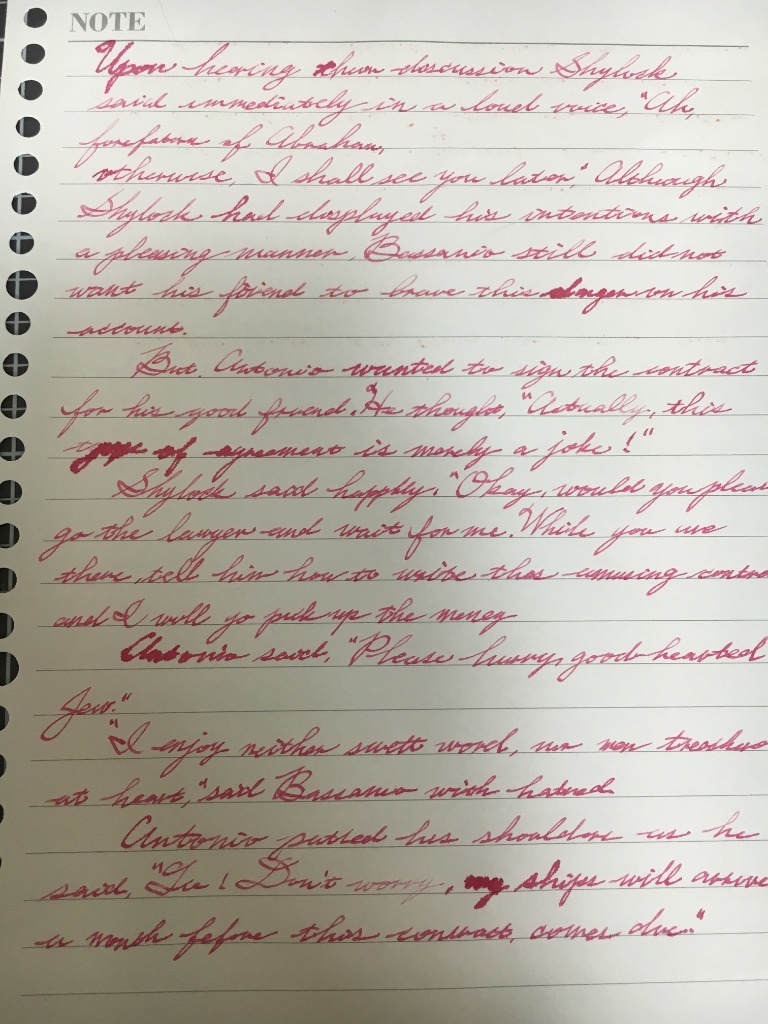 NOTE
Upon hearing their discussion Shylock
said immediately in a loud voice, "Ah,
forefathers of Abraham,
otherwise, I shall see you later." Although
Shylock had desplayed his intentions with
a pleasing manner, Bassanio still did not
want his friend to brave this danger on his
account.
But. Antonio wanted to sign the contract
for his good friend. He thought, "Actually, this
type of agreement is merely a joke!"
Shylock said happily, "Okay, would you please
go the lawyer and wait for me. While you are
there, tell him how to write this amusing
and I will go pick up the money
Antonio said, "Please hurry, good-hearted
Jew."
"I enjoy neither swett word, nor men
at heart," said Bassanio with hatred
Antonio patted his shoulder as he
said, "Don't worry, my ships will arrive
a month fefore this contract comes due."